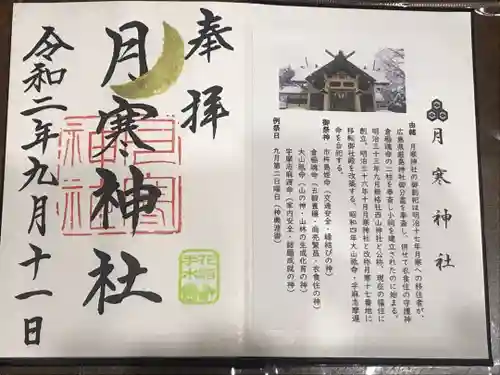 月寒神社
由緒 月寒神社の御創祀は明治十七年月寒への移住者が、
広島県厳島神社御分霊を奉斎し、併せて衣食住の守護神
倉稲魂命の二柱を奉斎し小祠を建立されたのに始まる。
明治三十三年九月無格社西山神社と公称、現在の福住に
創立、明治三十六年十月月寒神社と改称月寒十七番地に
移転御社殿を改築する。昭和四年大山祗命・宇麻志摩遅
命を合祀する。
御祭神 市杵島姫命（交通安全・縁結びの神）
倉稲魂命（五穀豊穣・商売繁昌・衣食住の神）
大山祗命（山の神・山林の生成化育の神）
宇摩志麻遅命（家内安全・諸願成就の神）
例祭日 九月第二日曜日（神輿渡御）
奉拝
月寒神社
令和二年九月十一日